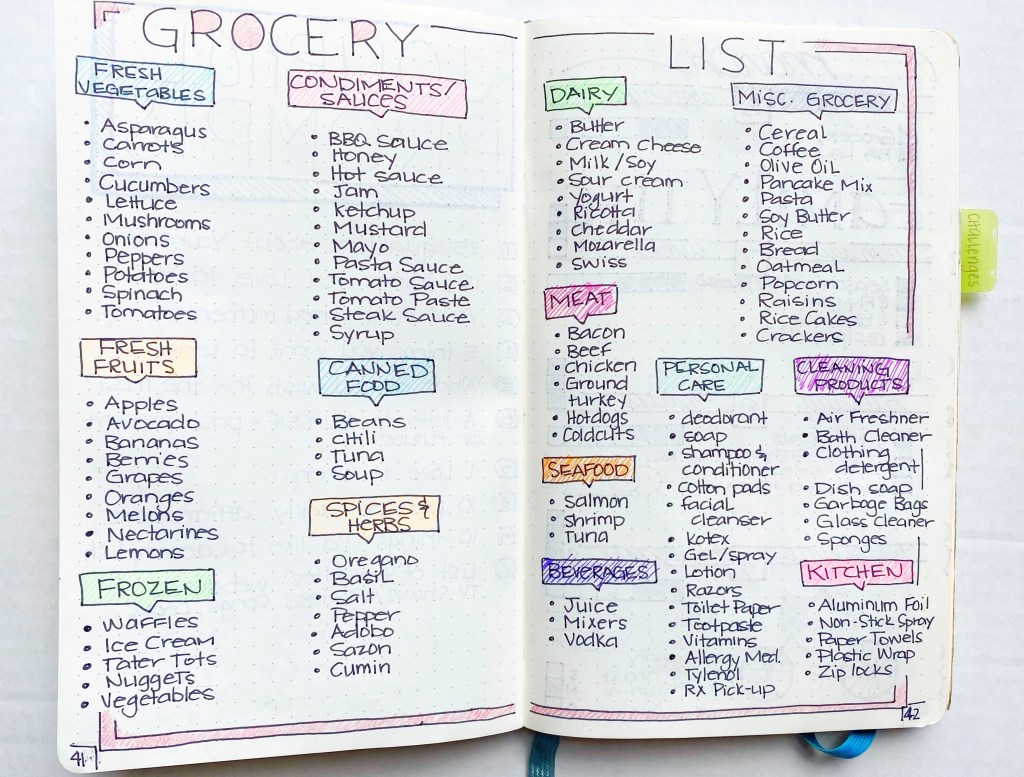 GROCERY
FRESH
VEGETABLES
Asparagus
Carrots
Corn
Cucumbers
Lettuce
Mushrooms
Onions
Peppers
Potatoes
Spinach
Tomatoes
FRESH
FRUITS
Apples
Avocado
Bananas
Berries
Grapes
Oranges
Melons
Nectarines
Lemons
FROZEN
Waffles
Ice Cream
Tater Tots
Nuggets
Vegetables
41
CONDIMENTS/
SAUCES
BBQ Sauce
Honey
Hot Sauce
Jam
Ketchup
Mustard
Mayo
Pasta Sauce
Tomato Sauce
Tomato Paste
Steak Sauce
Syrup
CANNED
FOOD
Beans
Chili
Tuna
Soup
SPICES &
HERBS
Oregano
Basil
Salt
Pepper
Adobo
Sazon
Cumin
LIST
DAIRY
Butter
Cream Cheese
Milk/Soy
Sour cream
Yogurt
Ricotta
Cheddar
Mozarella
Swiss
MEAT
Bacon
Beef
Chicken
Ground
turkey
Hotdogs
Coldcuts
SEAFOOD
Salmon
Shrimp
Tuna
BEVERAGES
Juice
Mixers
Vodka
MISC. GROCERY
Cereal
Coffee
Olive Oil
Pancake Mix
Pasta
Soy Butter
Rice
Bread
Oatmeal
Popcorn
Raisins
Rice Cakes
Crackers
PERSONAL
CARE
deodorant
soap
shampoo &
conditioner
cotton pads
facial
cleanser
Kotex
Gel/spray
Lotion
Razors
Toilet Paper
Tootpaste
Vitamins
Allergy Med.
Tylenol
RX Pick-up
CLEANING
PRODUCTS
Air Freshner
Bath Cleaner
Clothing
detergent
Dish soap
Garbage Bags
Glass Cleaner
Sponges
KITCHEN
Aluminum Foil
Non-Stick Spray
Paper Towels
Plastic Wrap
Zip locks
42
CHALLENGES